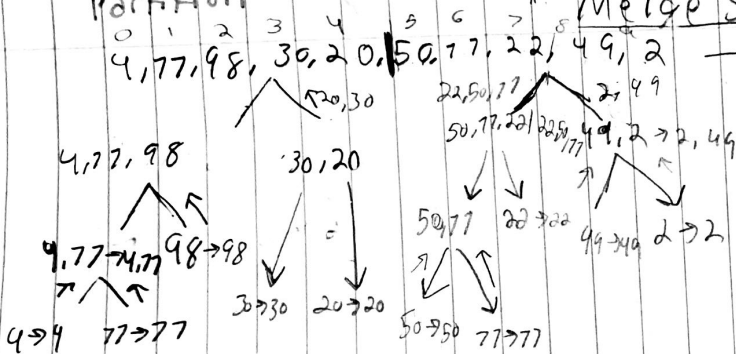 Merge S
0 1 2 3 4 5 6 7 8 9
4,77,98,30,20,|50,77,22,49,2
20,30 22,50,77 2,49
4,77,98 30,20 50,77,22 | 22,50,77 49,2→2,49
50,77 22→22 49→49 2→2
4,77→4,77 98→98
30→30 20→20 50→50 77→77
4→4 77→77